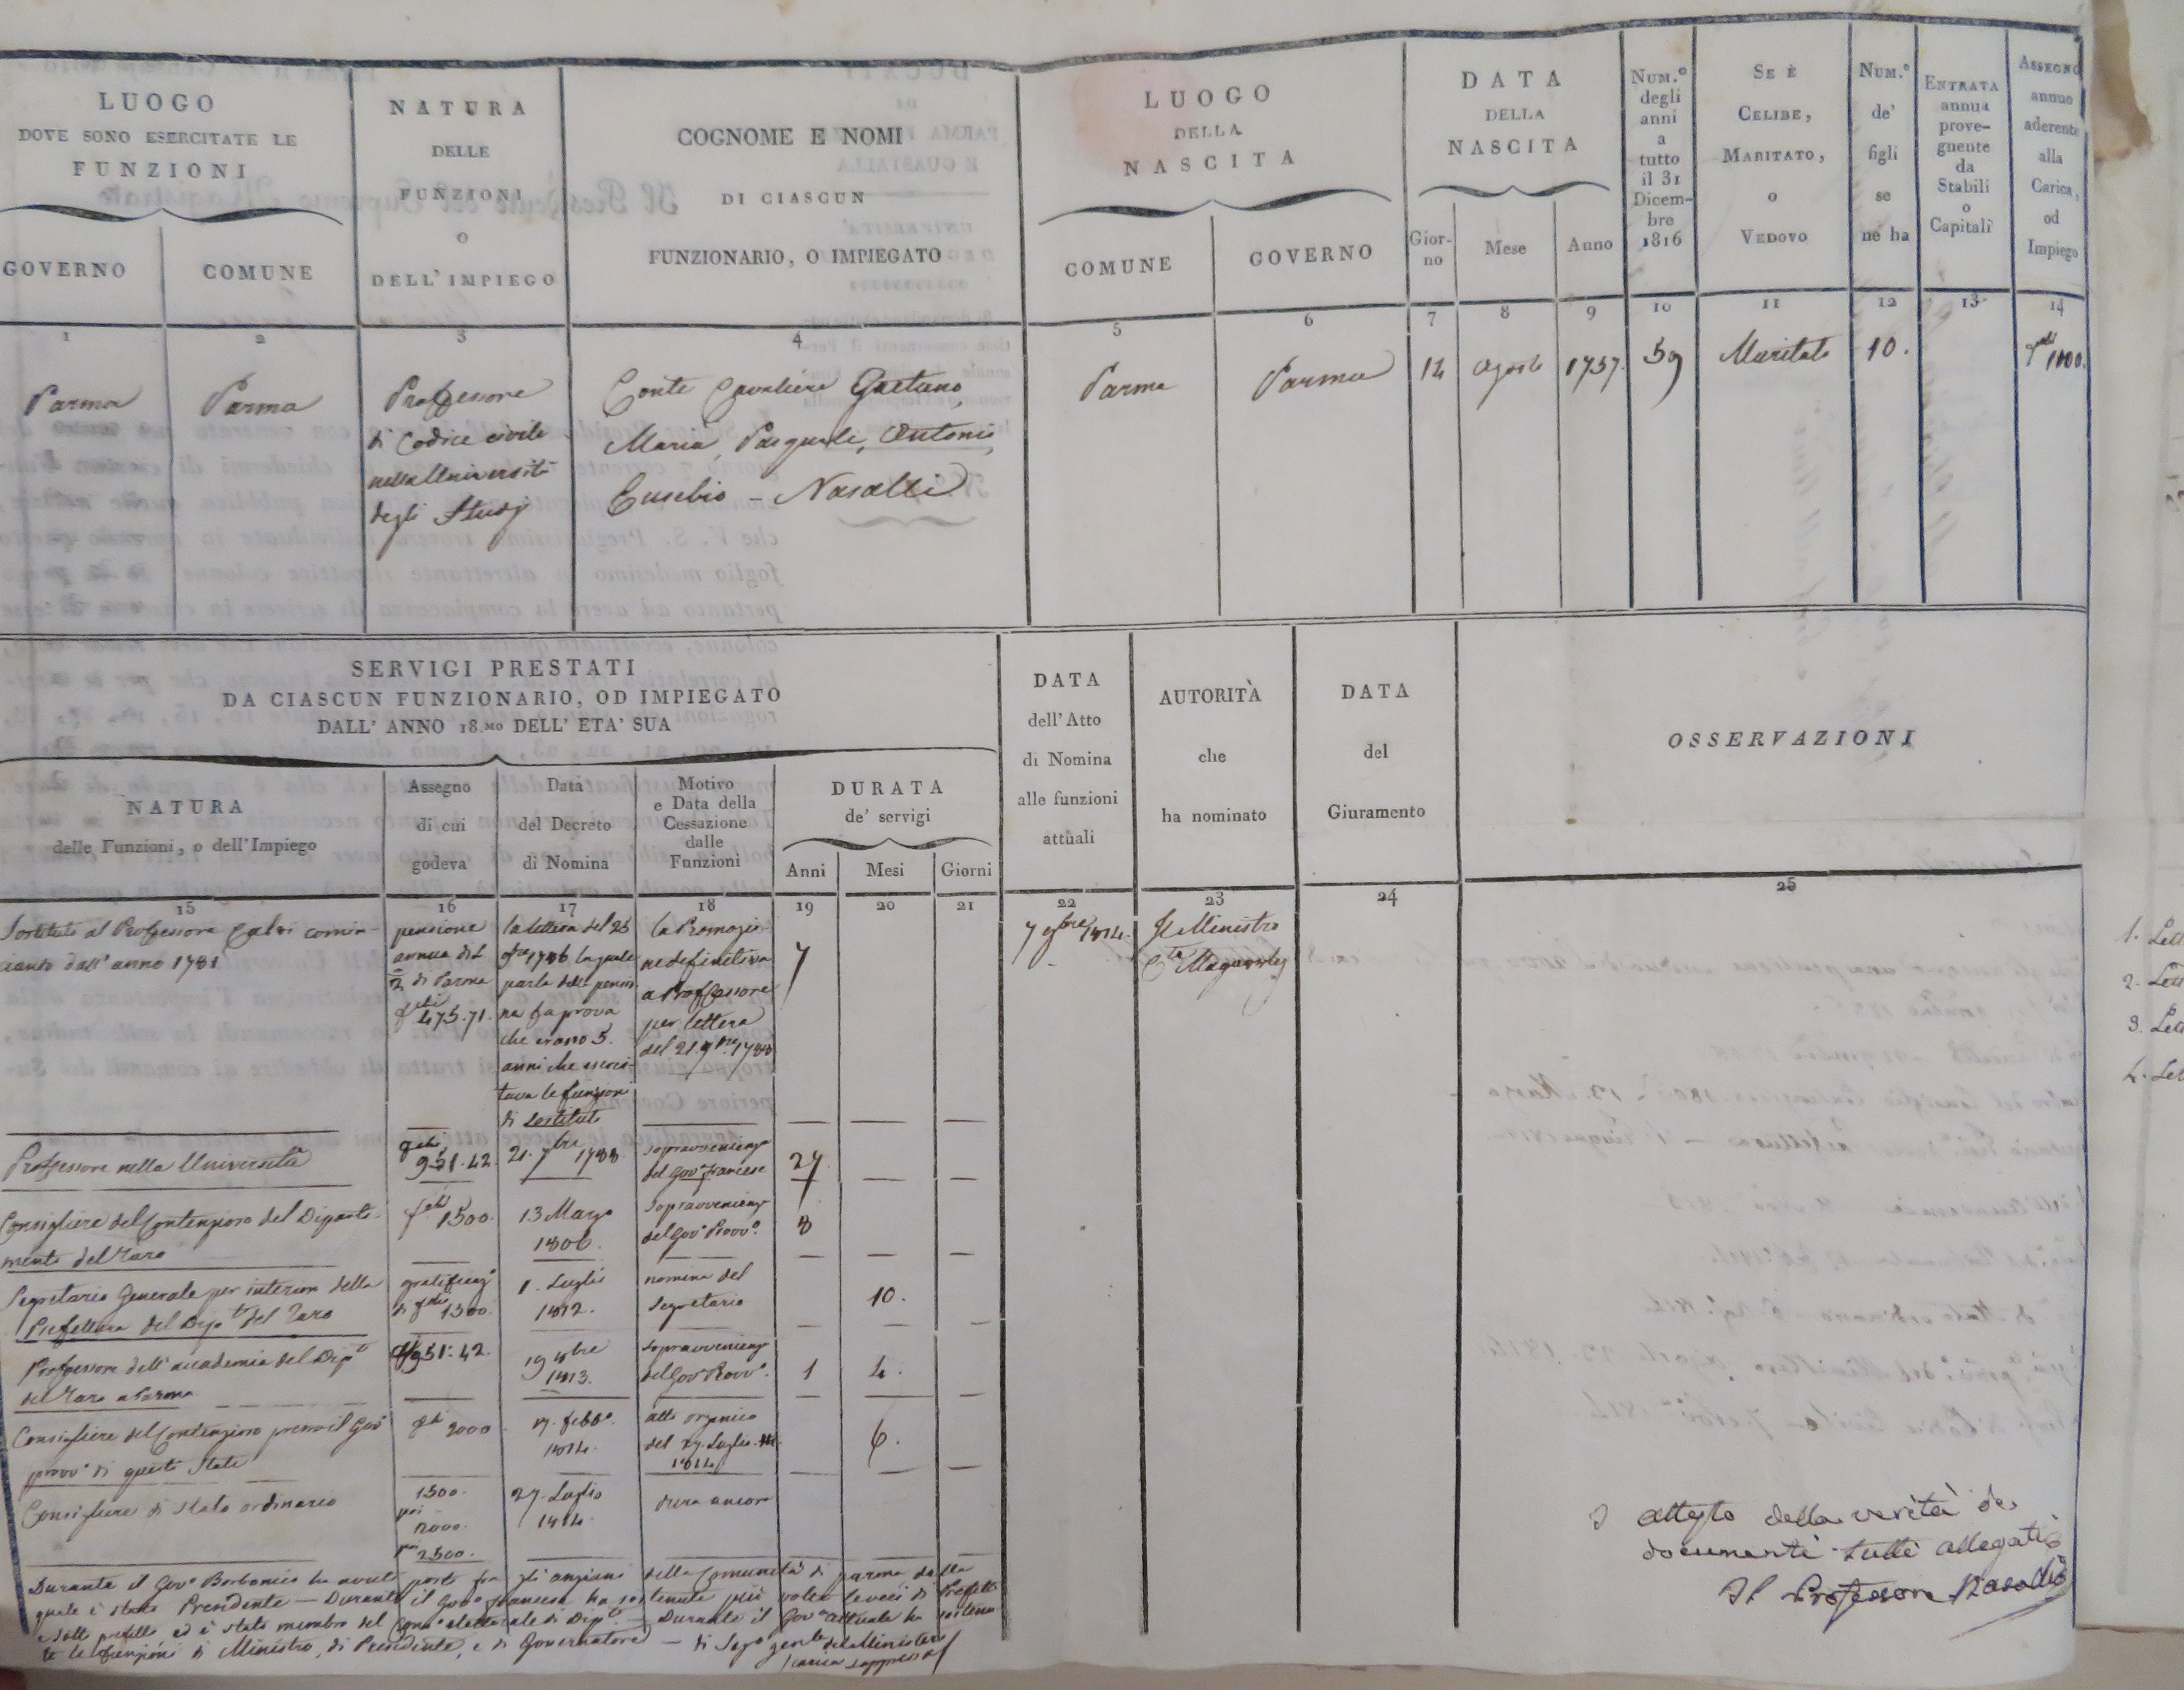 LUOGO
DOVE SONO ESERCITATE LE
FUNZIONI
GOVERNO
COMUNE
NATURA
DELLE
FUNZIONI
O
DELL'IMPIEGO
COGNOME E NOMI
DI CIASCUN
FUNZIONARIO, O IMPIEGATO
LUOGO
DELLA
NASCITA
COMUNE
GOVERNO
DATA
DELLA
NASCITA
Gior-
no
Mese
Anno
NUM.º
degli
anni
a
tutto
il 31
Dicem-
bre
1816
SE È
CELIBE,
MARITATO,
O
VEDOVO
NUM.º
de'
figli
se
ne ha
ENTRATA
annua
prove-
gnente
da
Stabili
o
Capitali
ASSEGNO
annuo
aderente
alla
Carica,
od
Impiego
1
2
3
4
5
6
7
8
9
10
11
12
13
14
Parma
Parma
Professore
di Codice civile
nella Università
degli Studj
Conte Cavaliere Gaetano,
Maria, Pasquale, Antonio,
Eusebio - Nasalli
Parma
Parma
12
agosto
1757.
59
Maritato
10.
SERVIGI PRESTATI
DA CIASCUN FUNZIONARIO, OD IMPIEGATO
DALL' ANNO 18.MO DELL' ETA' SUA
NATURA
delle Funzioni, o dell'Impiego
Assegno
di cui
godeva
Data
del Decreto
di Nomina
Motivo
e Data della
Cessazione
dalle
Funzioni
DURATA
de' servigi
Anni
Mesi
Giorni
DATA
dell'Atto
di Nomina
alle funzioni
attuali
AUTORITÀ
che
ha nominato
DATA
del
Giuramento
OSSERVAZIONI
15
16
17
18
19
20
21
22
23
24
25
Sostituto al Professore comin-
ciando dall'anno 1781
pensione
annua di L
di Parma
475.71.
la lettera del 25
1786 la quale
parla della pensio
ne fa prova
che erano 5.
anni che eserci-
tava le funzioni
di Sostituto
la Promozio-
ne definitiva
a Professore
per lettera
del 21. 7bre 1788
7
1814.
Il Ministro
Cte Magawly
Professore nella Università
951.42.
21. 7bre 1788.
sopravvenienza
del Govo Francese
27
Consigliere del Contenzioso del Diparti-
mento del Taro
1500.
13 Marzo
1806.
sopravvenienza
del Govo Provvo.
8
Segretario Generale per interim della
Prefettura del Dipto del Taro
di 1500.
1. Luglio
1812.
nomina del
Segretario
10.
Professore dell'accademia del Dipto
del Taro a Parma
951.42.
19 8bre
1813.
sopravvenienza
del Govo Provvo.
1
4.
Consigliere del Contenzioso presso il Govo
provvo di questi Stati
2000
1814.
atto organico
del 27. Luglio
1814
6.
Consigliere di Stato ordinario
1500.
poi
2000.
poi 2500.
27. Luglio
1814.
dura ancora
Durante il Govo Borbonico ha avuto posto fra gli anziani della Comunità di Parma della
quale è stato Presidente - Durante il Govo francese ha sostenute più volte le veci di Prefetto
e Sotto prefetto ed è stato membro del elettorale di Dipto - Durante il Govo attuale ha sostenu
te le funzioni di Ministro, di Presidente, e di Governatore - di Sego gen.le del Ministero
carica soppressa
attesto della verità de,
documenti tutti allegati
Il Professore Nasalli
1. Lett
2. Lett
3. Lett
4. Let